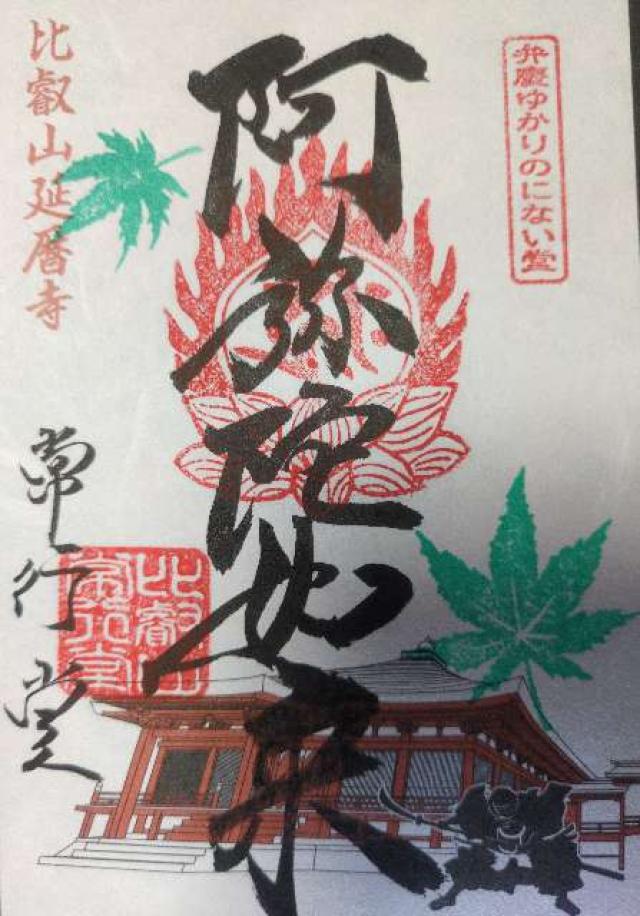 弁慶ゆかりのにない堂
阿弥陀如来
比叡山延暦寺
常行堂
比叡山
常行堂